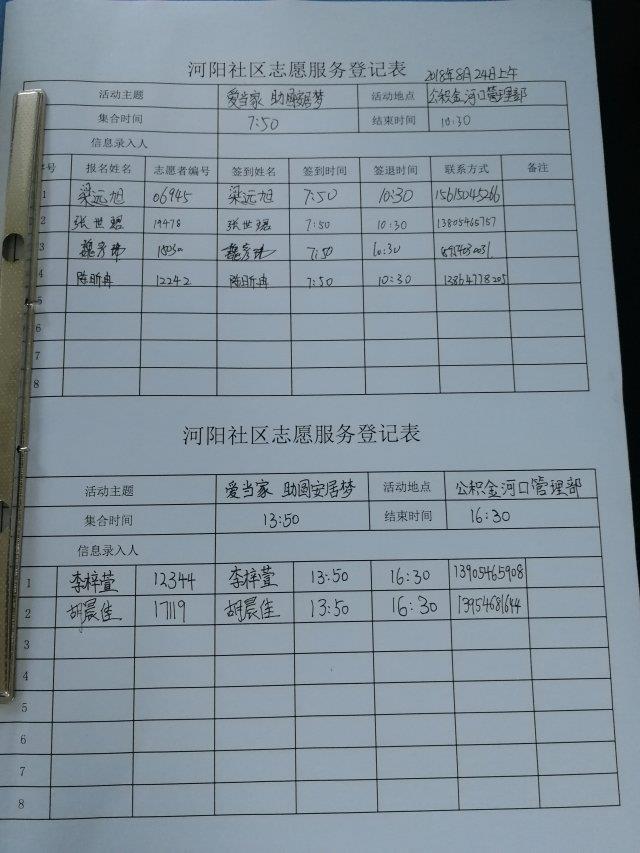 河阳社区志愿服务登记表 2018年8月24日上午
活动主题 爱当家 助圆安居梦 活动地点 公积金河口管理部
集合时间 7:50 结束时间 10:30
信息录入人
序号 报名姓名 志愿者编号 签到姓名 签到时间 签退时间 联系方式 备注
1 梁远旭 06945 梁远旭 7:50 10:30
2 张世珺 19478 张世珺 7:50 10:30 13805465757
3 魏彦沛 魏彦沛 7:50 10:30
4 陈昕冉 12242 陈昕冉 7:50 10:30 13864778205
5
6
7
8
河阳社区志愿服务登记表
活动主题 爱当家 助圆安居梦 活动地点 公积金河口管理部
集合时间 13:50 结束时间 16:30
信息录入人
1 李梓萱 12344 李梓萱 13:50 16:30 13905465908
2 胡晨佳 17119 胡晨佳 13:50 16:30 13954681644
3
4
5
6
7
8